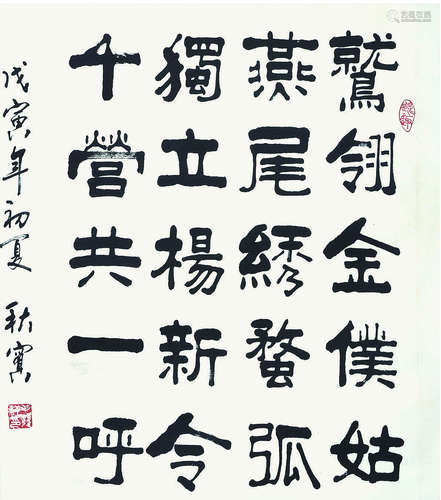 鷲翎金僕姑
燕尾綉蝥弧
獨立楊新令
千營共一呼
戊寅年初夏